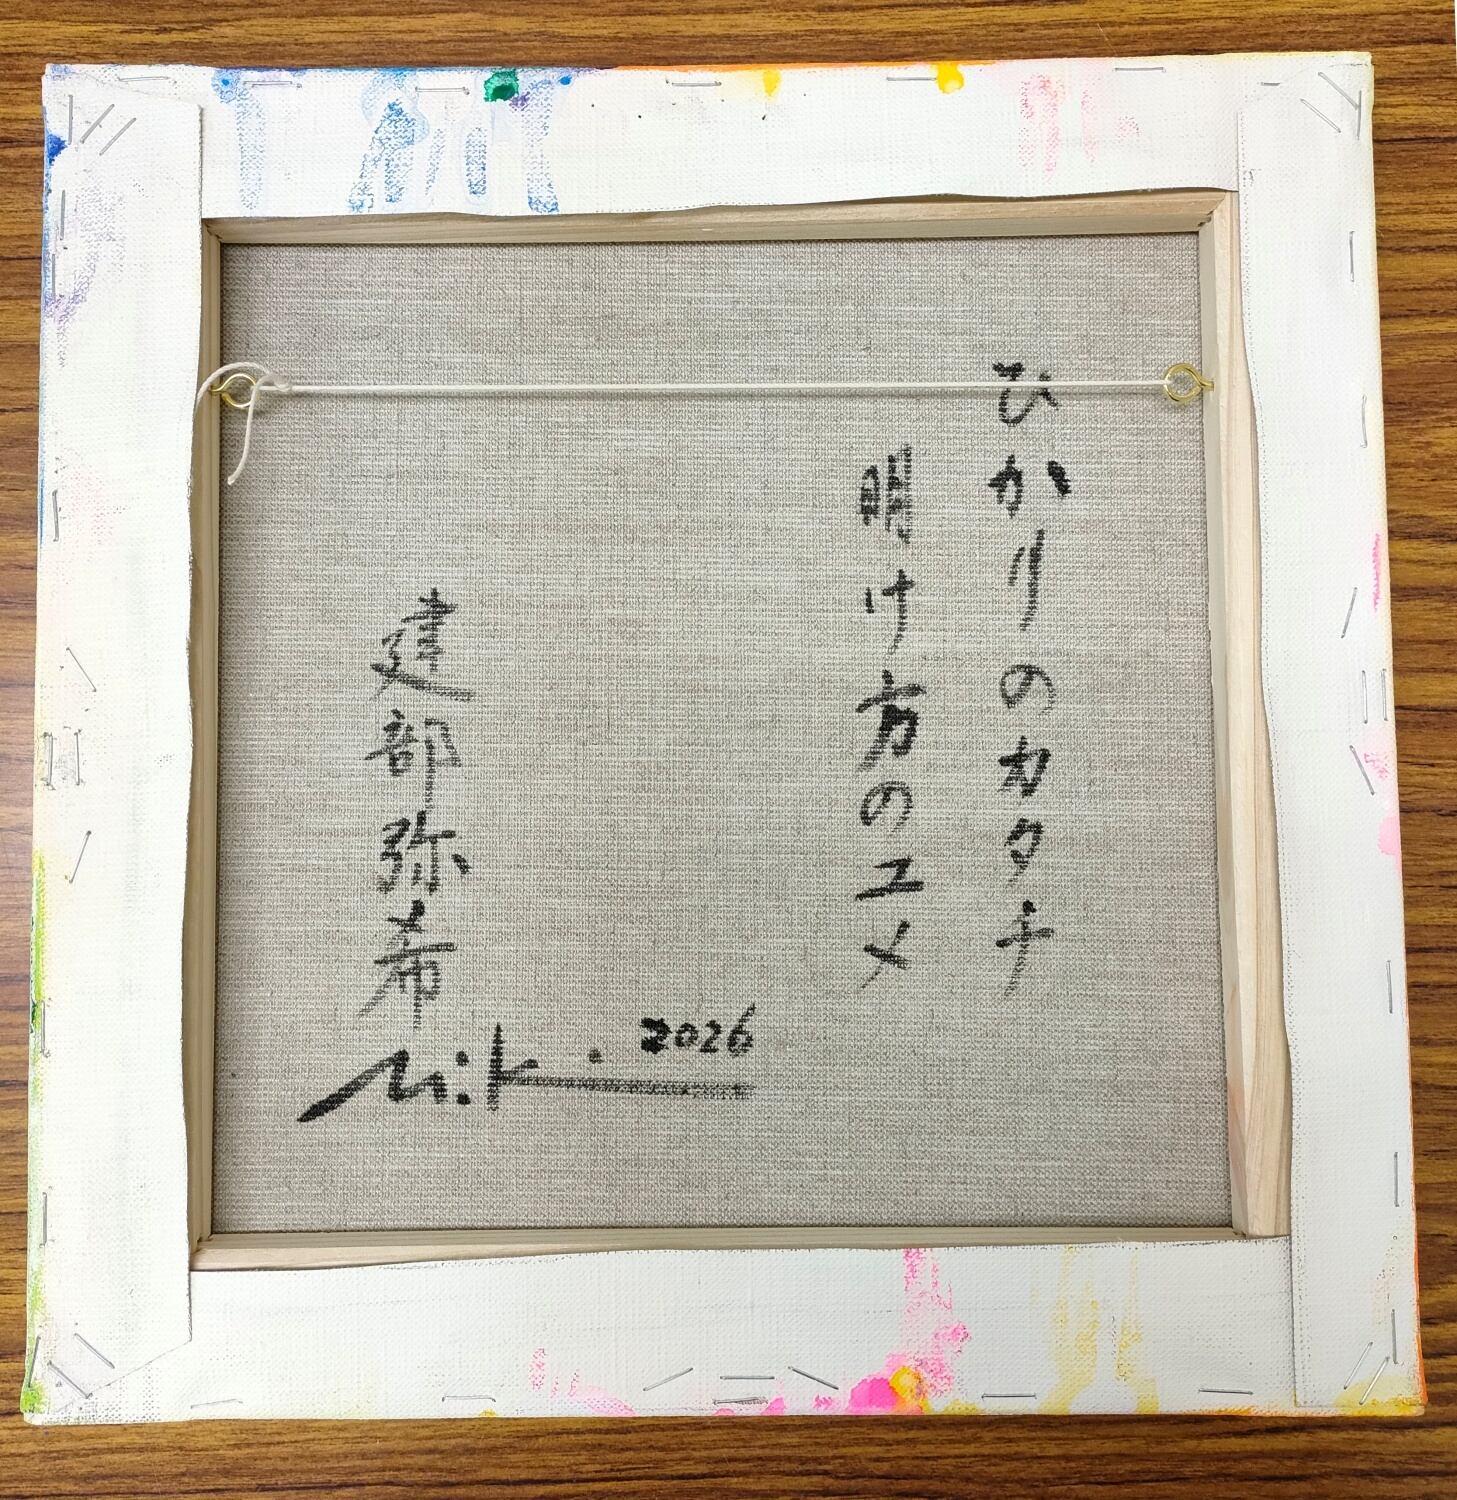 ひかりのカタチ
明け方のユメ
建部弥希
Miki. 2026